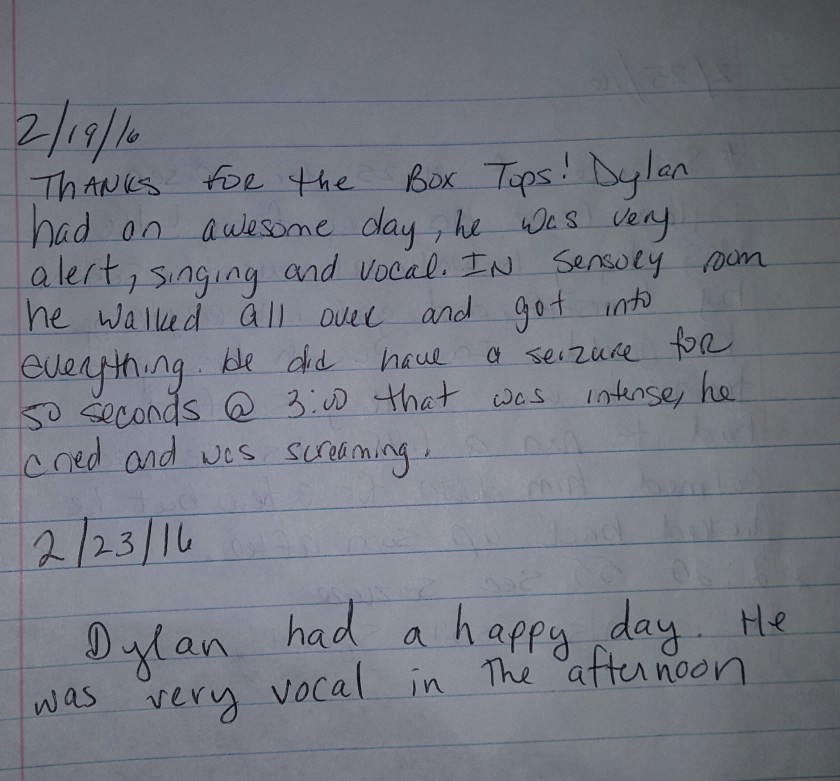 2/19/16
THANKS for the Box Tops! Dylan
had an awesome day, he was very
alert, singing and vocal. IN Sensory room
he walked all over and got into
everything. He did have a seizure for
50 seconds @ 3:00 that was intense, he
cried and was screaming.
2/23/16
Dylan had a happy day. He
was very vocal in The afternoon